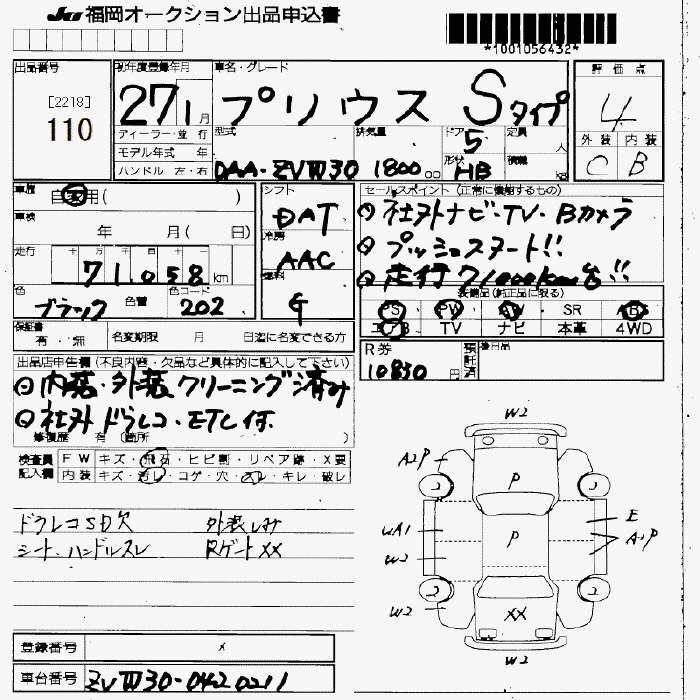 JU 福岡オークション出品申込書
*1001056432*
出品番号 初年度登録年月 車名・グレード 評価点
[2218]
110
27 1月 プリウス Sタイプ 4
ディーラー・並行 型式 排気量 ドア 5 定員 人 外装 内装
モデル年式 年 形状 積載 C B
ハンドル 左・右 DAA-ZVW30 1800cc HB kg
車歴 自家用( シフト セールスポイント(正常に機能するもの)
車検 年 月( 日) DAT ◎社外ナビ・TV・Bカメラ
冷房 AAC ◎プッシュスタート!!
走行 71,058km ◎走行71000km台!!
色 ブラック 色替 色コード 202 燃料 G 装備品(純正品に限る)
PS PW AW SR ABS
エアB TV ナビ 本革 4WD
保証書 有・無 名変期限 月 日迄に名変できる方
R券 10830円 預託済 後日品
出品店申告欄(不良内容・欠品など具体的に記入して下さい)
◎内装・外装クリーニング済み
◎社外ドラレコ・ETC付.
修復歴 有(箇所 )
検査員記入欄 FW キズ・飛石・ヒビ割・リペア跡・X要
内装 キズ・汚レ・コゲ・穴・スレ・キレ・破レ
ドラレコSD欠 外装しみ
シート、ハンドルスレ Rゲート XX
W2
A2P
P
E
WA1 P A2P
W2
W2 XX
W2
登録番号
車台番号 ZVW30-0420211